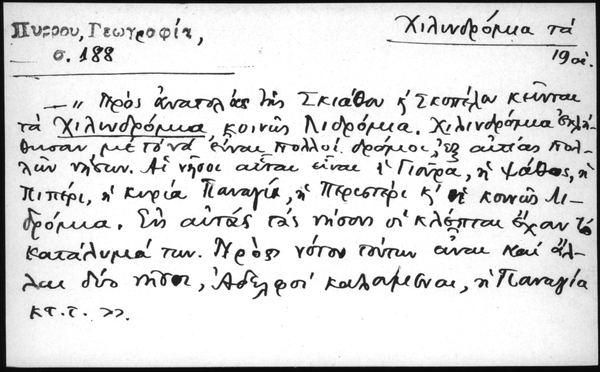 Πυρρου, Γεωγραφία,
σ. 188
Χιλινδρόμια τά
19 αἰ.
— „ Πρὸς ἀνατολὰς τῆς Σκιάθου κ' Σκοπέλου κεῖνται
τὰ Χιλινδρόμια, κοινῶς Λιδρόμια. Χιλινδρόμια ἐκλή-
θησαν μὲ τὸ νὰ εἶναι πολλοὶ δρόμοι, ἐξ αἰτίας πολ-
λῶν νήσων. Αἱ νῆσοι αὗται εἶναι ἡ Γιοῦρα, ἡ Ψάθος, ἡ
Πιπέρι, ἡ κυρία Παναγία, ἡ Περιστέρι κ' ἡ κοινῶς Λι-
δρόμια. Εἰς αὐτὰς τὰς νήσους οἱ κλέπται ἔχουν τὸ
κατάλυμά των. Πρὸς νότον τούτων εἶναι καὶ ἄλ-
λαι δύο νῆσοι, Ἀδελφοὶ καλούμεναι, ἡ Παναγία
κτ.τ. >>.